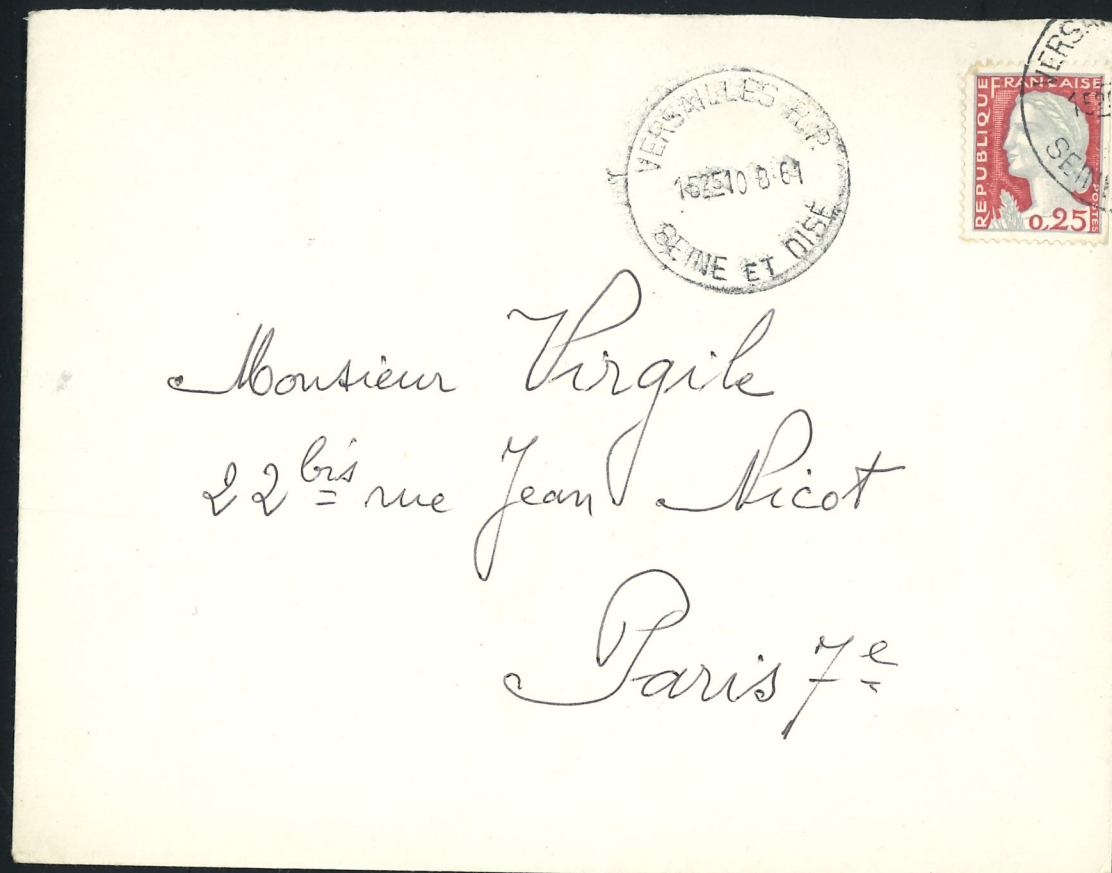 VERSAILLES R.P.
15 25 10 8 61
SEINE ET OISE
VERSA
SEIN
RÉPUBLIQUE FRANÇAISE
POSTES
0,25
Monsieur Virgile
22 bis rue Jean Nicot
Paris 7e